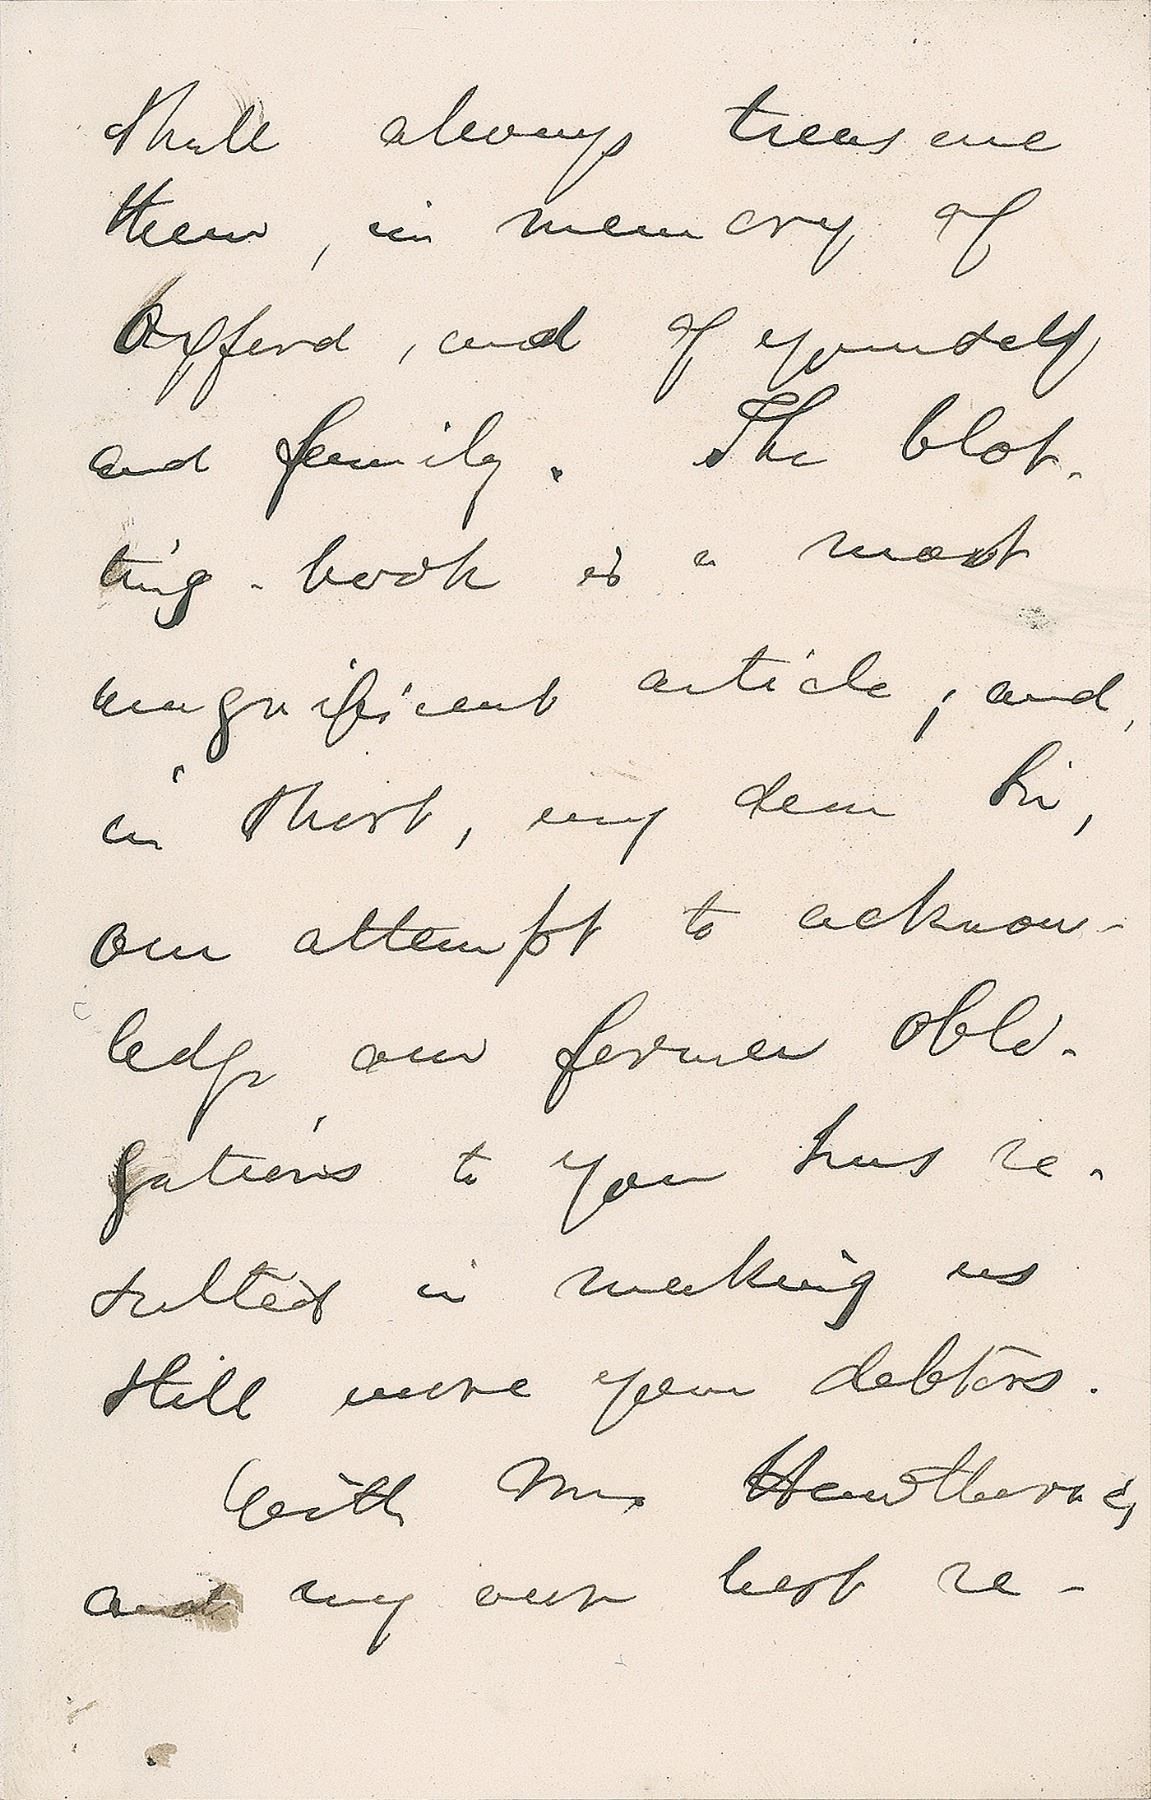 shall always treasure
them, in memory of
Oxford, and of yourself
and family. The blot-
ting-book is a most
magnificent article; and,
in short, my dear Sir,
our attempt to acknow-
ledge our former obli-
gations to you has re-
sulted in making us
still more your debtors.
With Mrs Hawthorne's
and my own best re-